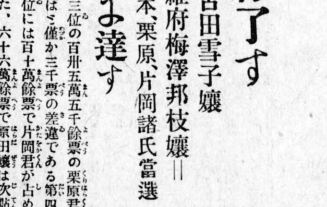 了す
古田雪子孃
維府梅澤邦枝孃＝
本、栗原、片岡諸氏當選
よ達す
三位の百卅五萬五千餘票の栗原君
はミ僅か三千票の差違である第四
位には百十萬餘票で片岡君が占め
た、六十六萬餘票で原田孃は次點